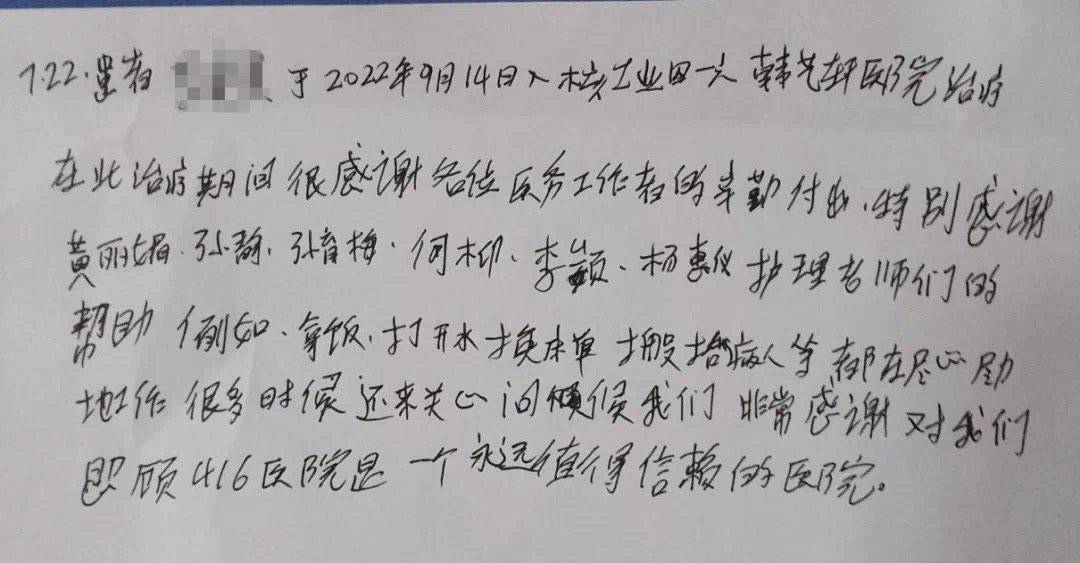 7.22.患者 于2022年9月14日入核工业四一六 医院治疗
在此治疗期间很感谢各位医务工作者的辛勤付出、特别感谢
黄丽娟、孙静、张育梅、何柳、李颖、杨惠仪护理老师们的
帮助 例如、拿饭、打开水 换床单 搬抬病人等 都在尽心尽力
地工作 很多时候还来关心问候我们 非常感谢对我们
照顾416医院是一个永远值得信赖的医院。